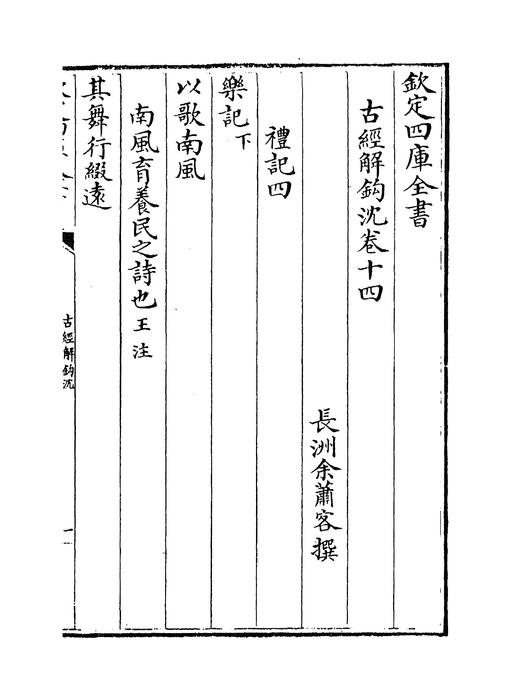 欽定四庫全書
古經解鈎沈卷十四
長洲余蕭客撰
禮記四
樂記下
以歌南風
南風育養民之詩也王注
其舞行綴遠
古經解鈎沈
一